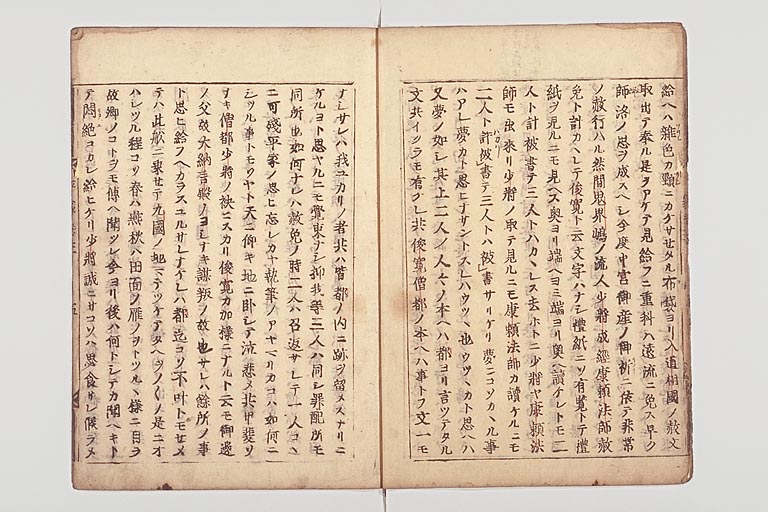 給ヘハ雑色カ頸ニカケサセタル布袋ヨリ入道相國ノ赦文
取出テ奉ル是ヲアケテ見給フニ重科ハ遠流ニ免ス早ク
師洛ノ思ヲ成スヘシ今度中宮御産ノ御祈ニ依テ非常
ノ赦行ハル然間鬼界嶋ノ流人少將成經康頼法師赦
免ト計カヽレテ俊寛ト云文字ハナシ禮紙ニソ有覧トテ禮
紙ヲ見ルニモ見ヘス奥ヨリ端ヘヨミ端ヨリ奥ヘ讀ケレトモ二
人ト計被書テ三人トハカヽレス去ホトニ少將ヤ康頼法
師モ出來リ少將ノ取テ見ルニモ康頼法師カ讀ケルニモ
二人ト計被書テ三人トハ被書サリケリ夢ニコソカヽル事
ハアレ夢カト思ヒナサントスレハウツヽ也ウツヽカト思ヘハ
又夢ノ如シ其上二人ノ人々ノ本ヘハ都ヨリ言ツテタル
文共イクラモ有ケレ共俊寛僧都ノ本ヘハ事トフ文一モ
ナシサレハ我ユカリノ者共ハ皆都ノ内ニ跡ヲ留メスナリニ
ケルヨト思ヤルニモ覺束ナシ抑我等三人ハ同シ罪配所モ
同所也如何ナレハ赦免ノ時二人ハ召返サレテ一人コヽ
ニ可殘平家ノ思ヒ忘レカヤ執筆ノアヤマリカコハ如何ニ
シツル事トモソヤト天ニ仰キ地ニ臥シテ泣悲メ共甲斐ソ
ナキ僧都少將ノ袂ニスカリ俊寛カ加様ニナルト云モ御邊
ノ父故大納言殿ノヨシナキ謀叛ノ故也サレハ餘所ノ事
ト思ヒ給フヘカラスユルサレナケレハ都迄コソ不叶トモセメ
テハ此舩ニ乗セテ九國ノ地ヘ下テツケテタヘヲノヽヽノ是ニオ
ハシツル程コソ春ハ燕秋ハ田面ノ雁ノヲトツルヽ様ニ自ラ
故郷ノコトヲモ傳ヘ聞ツレ今ヨリ後ハ何トシテカ聞ヘキト
テ悶絶コカレ給ヒケリ少將誠ニサコソハ思食サレ候ラメ